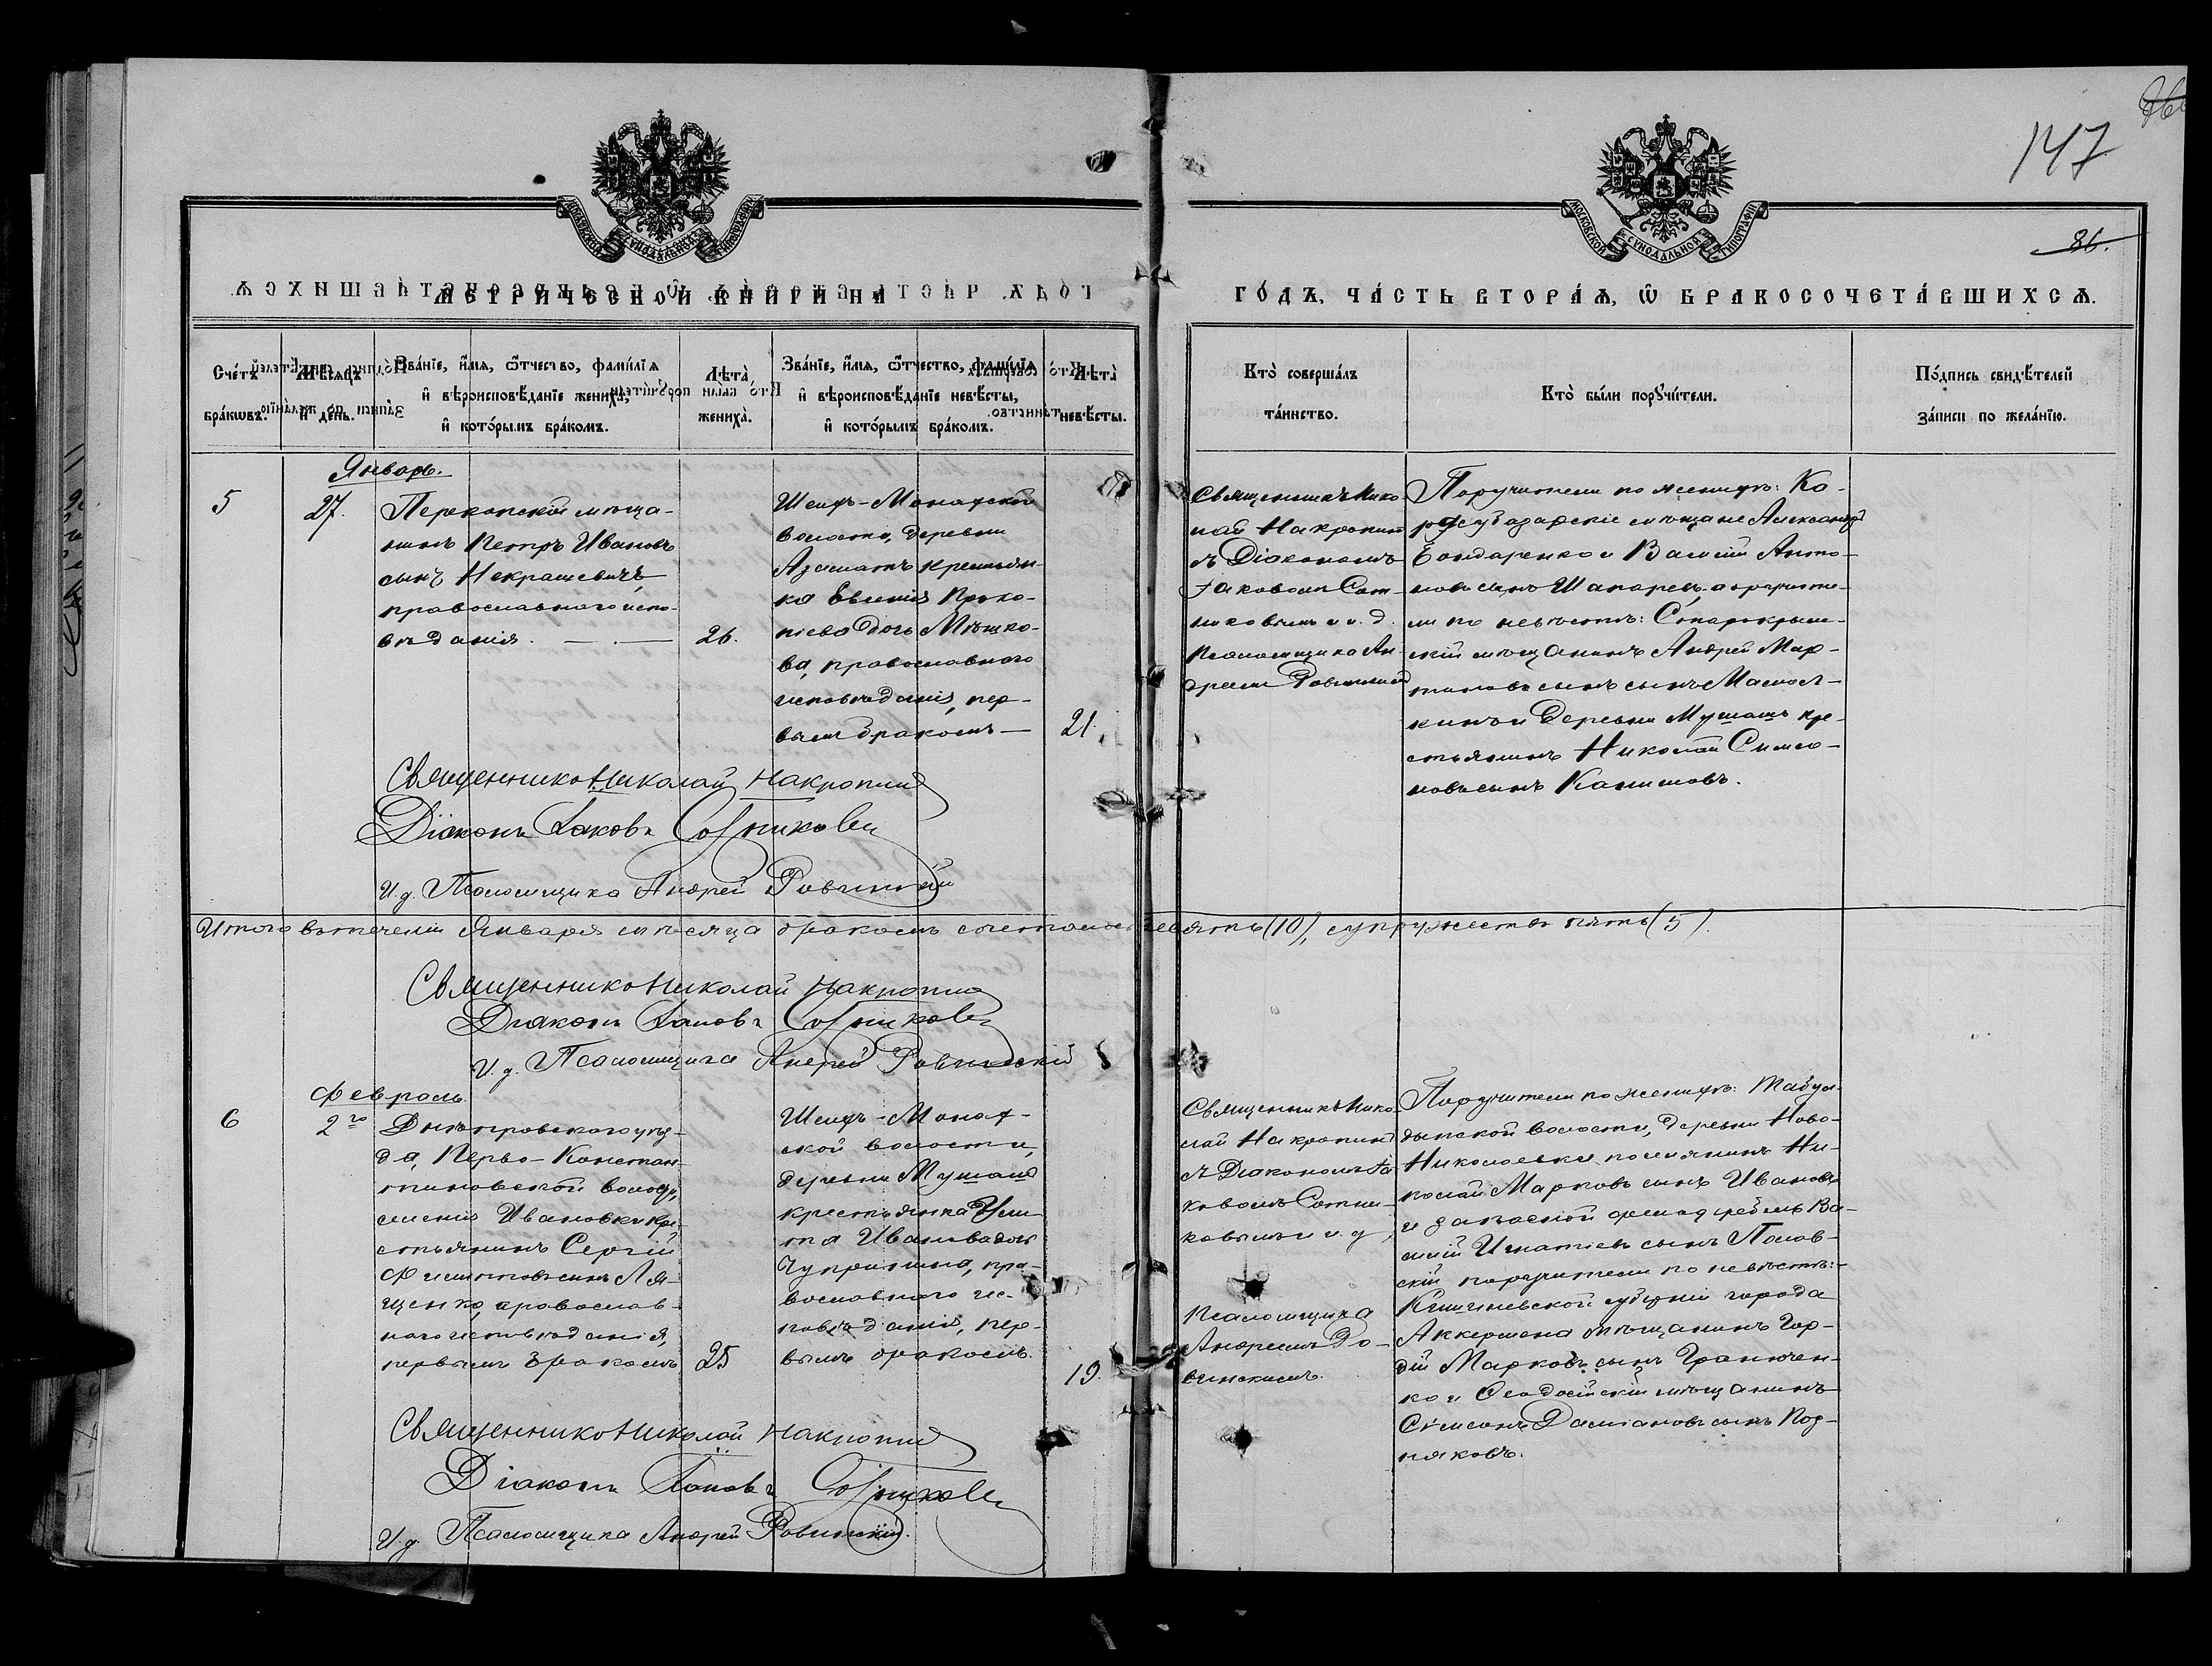 147
86.
МЕТРИЧЕСКОЙ КНИГИ НА
ГОДЪ, ЧАСТЬ ВТОРАѦ, Ѡ БРАКОСОЧЕТАВШИХСѦ.
Счетъ браковъ.
Мѣсяцъ и день.
Званїе, имя, ѿчество, фамилїя
и вѣроисповѣданїе жениха,
и которымъ бракомъ.
Лѣта жениха.
Званїе, имя, ѿчество, фамилїя
и вѣроисповѣданїе невѣсты,
и которымъ бракомъ.
Лѣта невѣсты.
Кто совершалъ
таинство.
Кто были поручители.
Подпись свидѣтелей
записи по желанїю.
Январь.
5
27.
Перекопскій мѣща-
нинъ Петръ Ивановъ
сынъ Некрашевичъ,
православнаго испо-
вѣданія.
26.
Шеихъ-Монахской
волости, деревни
Азаматъ крестьян-
ка Евгенія Проко-
піева дочь Мѣшко-
ва, православнаго
исповѣданія, пер-
вымъ бракомъ
21.
Священникъ Нико-
лай Накропинъ
съ Діакономъ
Іаковомъ Сот-
никовымъ и и. д.
Псаломщика Ан-
дреемъ
Поручители по женихѣ: Ка-
расубазарскіе мѣщане Александръ
Бондаренко и Василій Анто-
новъ сынъ Шапаревъ, а поручите-
ли по невѣстѣ: Старокрым-
скій мѣщанинъ Андрей Мар-
тиновъ сынъ сынъ
кинъ и деревни Мушашъ кре-
стьянинъ Николай Симео-
новъ сынъ Калишовъ.
Священникъ Николай Накропинъ
Діаконъ Іаковъ Сотниковъ
И. д. Псаломщика Андрей Ровинскій
Итого въ теченіи Января мѣсяца бракомъ сочеталось десять (10), супружествъ пять (5).
Священникъ Николай Накропинъ
Діаконъ Іаковъ Сотниковъ
И. д. Псаломщика Андрей Ровинскій
Февраль.
6
2го
Днѣпровского уѣз-
да, Перво-Констан-
тиновской волости,
селенія Ивановки кре-
стьянинъ Сергій
Филипповъ сынъ Ля-
щенко, православ-
наго исповѣданія,
первымъ бракомъ
25
Шеихъ-Монах-
ской волости,
деревни Мушашъ
крестьянка Ули-
та Иванова дочь
Чуприлина, пра-
вославного ис-
повѣданія, пер-
вымъ бракомъ.
19.
Священникъ Нико-
лай Накропинъ
съ Діакономъ Іа-
ковомъ Сотни-
ковымъ и и. д.
Псаломщика
Андреемъ Ро-
винскимъ.
Поручители по женихѣ: Табул-
дынской волости, деревни Ново-
Николаевки поселянинъ Ни-
колай Марковъ сынъ Ивановъ
и запасной Ва-
силій Игнатіевъ сынъ
скій поручители по невѣстѣ:
Кишиневской губерніи города
Аккермена мѣщанинъ Гор-
дій Марковъ сынъ
ко и Ѳеодосійскій мѣщанинъ
Симеонъ Даміановъ сынъ Поз-
няковъ.
Священникъ Николай Накропинъ
Діаконъ Іаковъ Сотниковъ
И. д. Псаломщика Андрей Ровинскій.